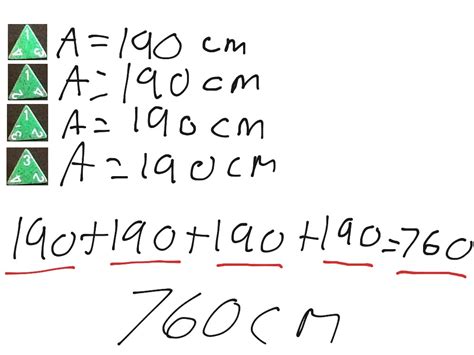 A = 190 cm
A = 190 cm
A = 190 cm
A = 190 cm
190 + 190 + 190 + 190 = 760
760 cm